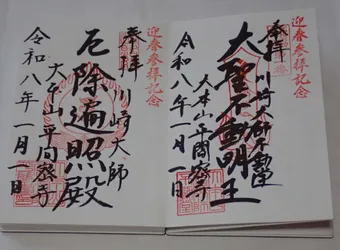 迎春参拝記念
奉拝
川崎大師不動堂
大聖不動明王
大本山平間寺
令和八年一月一日
迎春参拝記念
奉拝
川崎大師
厄除遍照殿
大本山平間寺
令和八年一月一日